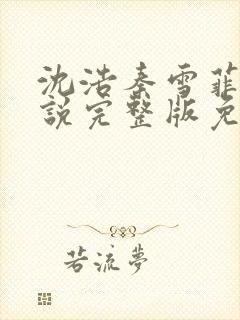 沈浩秦雪菲
說完整版免
若流夢